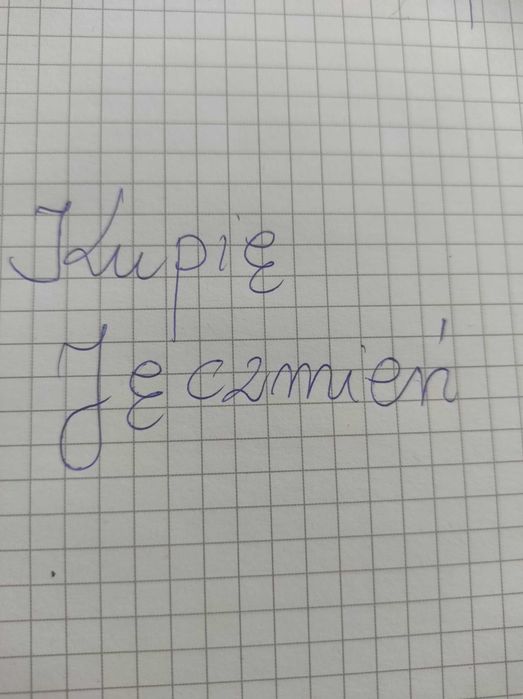 Kupię
Jęczmień